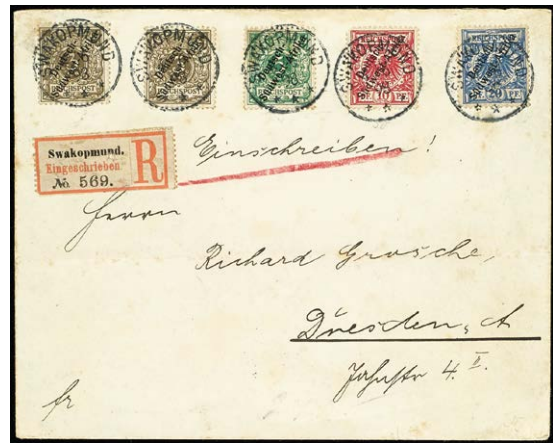 SWAKOPMUND SWAKOPMUND SWAKOPMUND SWAKOPMUND SWAKOPMUND
REICHSPOST REICHSPOST REICHSPOST 10 PF. 20 PF.
Einschreiben!
Swakopmund.
Eingeschrieben.
R
No 569.
Herrn
Richard Grosche,
Dresden, A
Jahnstr 4. II.
fr